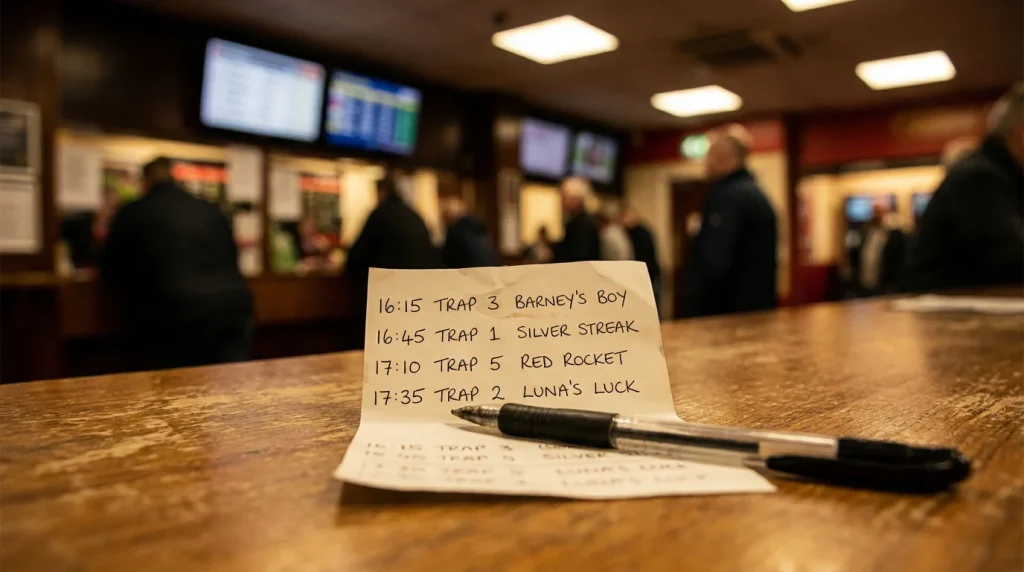 16:15 TRAP 3 BARNEY'S BOY
16:45 TRAP 1 SILVER STREAK
17:10 TRAP 5 RED ROCKET
17:35 TRAP 2 LUNA'S LUCK
16 15 TRAP 3
16 45 TRAP 5 SILVER
TRAP 5 LUNA'S LUCK
TRAP LUNA'S LUCK